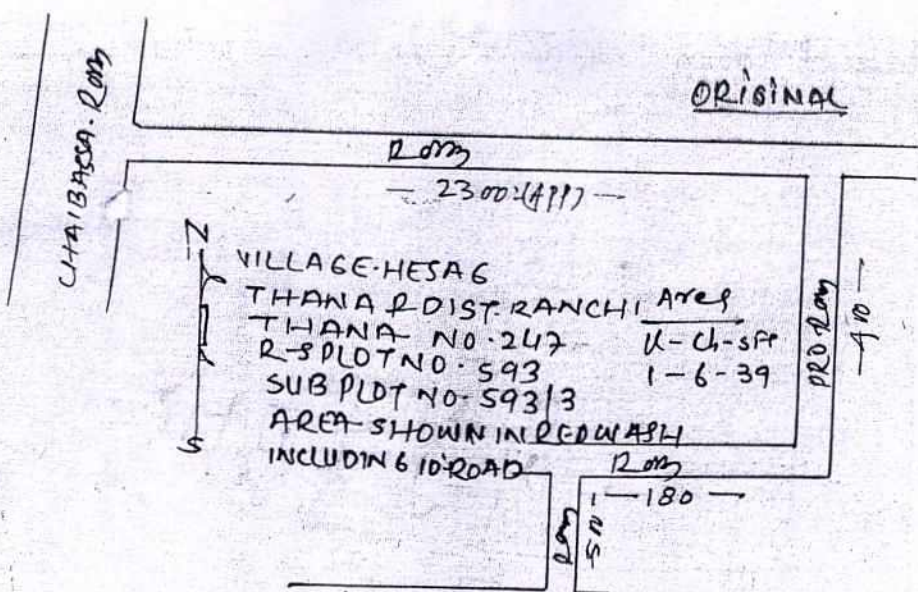 ORIGINAL
CHAIBASSA. Rom
Rom
— 2300:(APP) —
N
VILLAGE-HESAG
THANA & DIST. RANCHI
THANA NO. 247
R-S PLOT NO. 593
SUB PLOT NO- 593/3
AREA SHOWN IN RED WASH
INCLUDING 10' ROAD
S
Area
K-Ch-sft
1-6-39
PRO. Rom
Rom
—180—
Rom